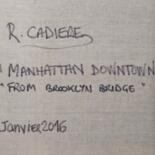 R. CADIERE
MANHATTAN DOWNTOWN
"FROM BROOKLYN BRIDGE"
Janvier 2016